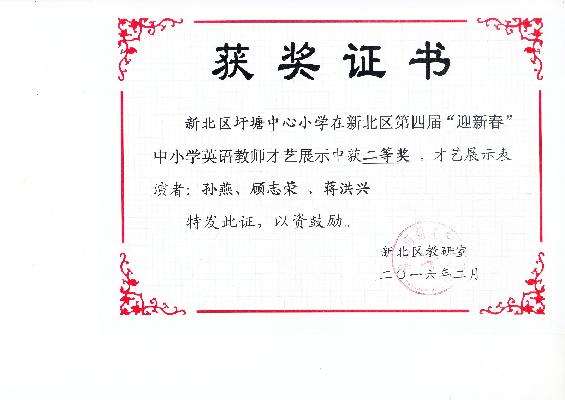 获奖证书
新北区圩塘中心小学在新北区第四届“迎新春”
中小学英语教师才艺展示中获二等奖，才艺展示表
演者：孙燕、顾志荣、蒋洪兴
特发此证，以资鼓励。
新北区教研室
二〇一六年二月